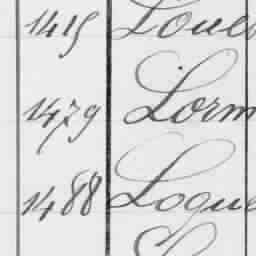 1415 Loue
1479 Lorm
1488 Logue